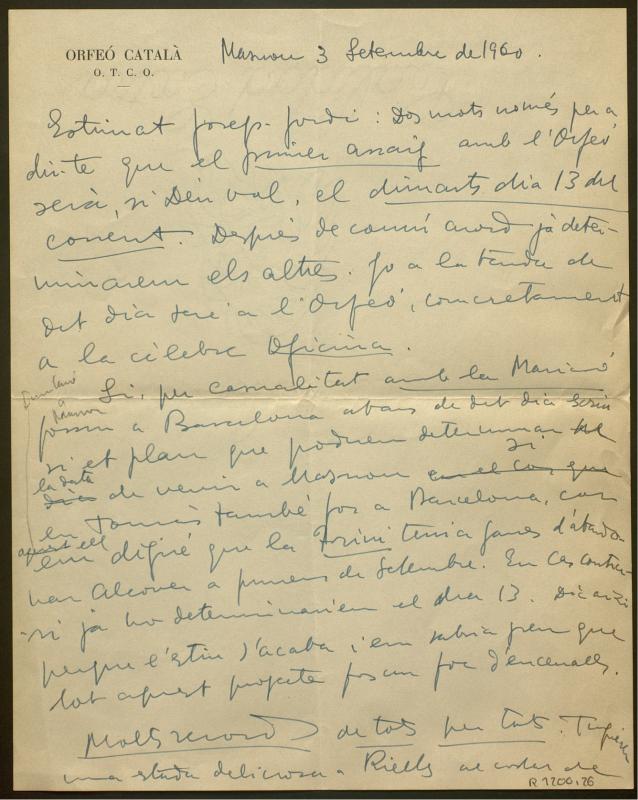 ORFEÓ CATALÀ
O. T. C. O.
Masnou 3 Setembre de 1960.
Estimat Josep-Jordi: Dos mots només per a
dir-te que el primer assaig amb l'Orfeó
serà, si Déu vol, el dimarts dia 13 del
corrent. Després de comú acord ja deter-
minarem els altres. Jo a la tarda de
dit dia seré a l'Orfeó, concretament
a la cèlebre Oficina.
Si, per casualitat amb la Mariació
fossiu a Barcelona abans de dit dia
si et plau que poguem determinar el
la data
dia de venir a Masnou en el cas que si
en Tomàs també fos a Barcelona, com
apart ell
em digué que la Trini tenia ganes d'abando-
nar Alcover a primers de Setembre. En cas contra-
ri ja ho determinaríem el dia 13. Dic així
perque l'estiu s'acaba i em sabria greu que
tot aquest projecte fos un foc d'encenalls.
Molts records de tots per tots. Tinguérem
una estada deliciosa a Riells al costat de
R 1200,26